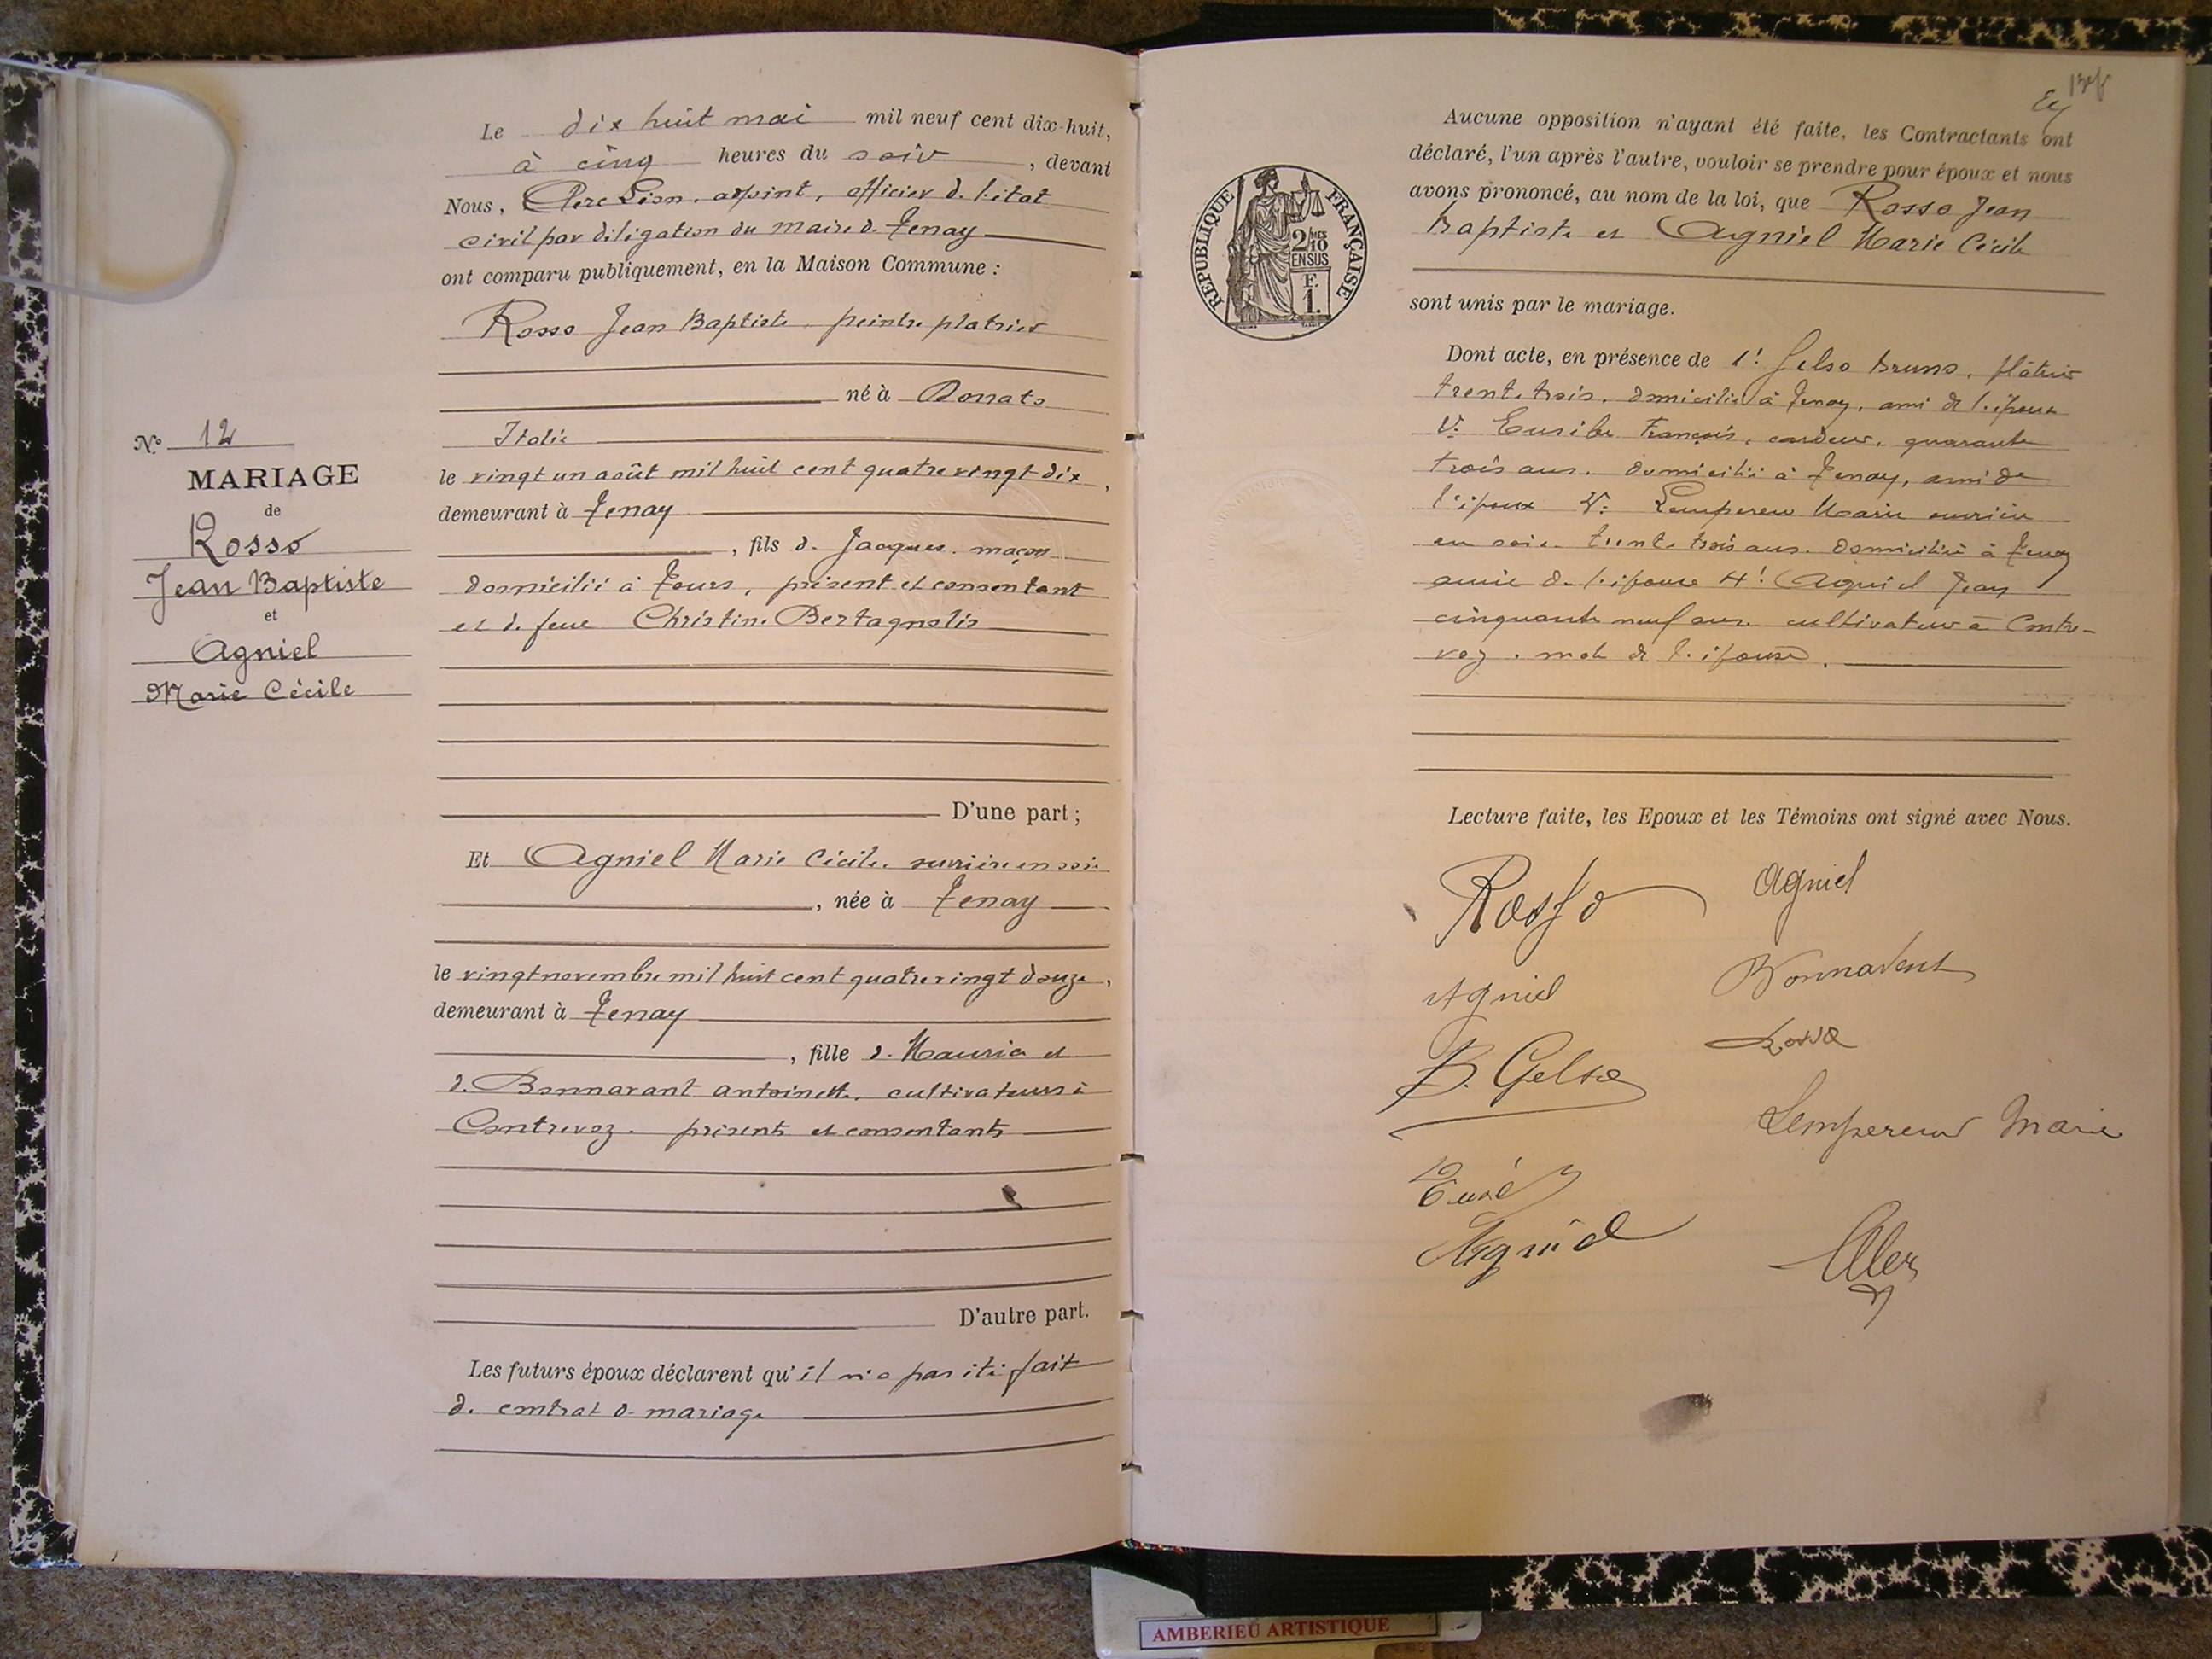 Le dix huit mai mil neuf cent dix-huit,
à cinq heures du soir, devant
Nous, Léon, adjoint, officier de l'état
civil par délégation du maire de Tenay
ont comparu publiquement, en la Maison Commune :
Rosso Jean Baptiste peintre plâtrier
né à Donato
Italie
le vingt un août mil huit cent quatre vingt dix,
demeurant à Tenay
, fils de Jacques maçon
domicilié à Tours, présent et consentant
et de feue Christine Bertagnolio
D'une part ;
Nº 12
MARIAGE
de
Rosso
Jean Baptiste
et
Agniel
Marie Cécile
Et Agniel Marie Cécile, ouvrière en soie
, née à Tenay
le vingt novembre mil huit cent quatre vingt douze,
demeurant à Tenay
, fille de Maurice et
de Bonnavant Antoinette, cultivateurs à
Contrevoz, présents et consentants
D'autre part.
Les futurs époux déclarent qu'il n'a pas été fait
de contrat de mariage
Aucune opposition n'ayant été faite, les Contractants ont
déclaré, l'un après l'autre, vouloir se prendre pour époux et nous
avons prononcé, au nom de la loi, que Rosso Jean
Baptiste et Agniel Marie Cécile
sont unis par le mariage.
RÉPUBLIQUE FRANÇAISE
2/10 MES
EN SUS
F.
1.
Dont acte, en présence de 1º Gelso Bruno, plâtrier
trente trois, domicilié à Tenay, ami de l'époux
François, cardeur, quarante
trois ans, domicilié à Tenay, ami de
l'époux Lempereur Marie ouvrière
en soie trente trois ans domiciliée à Tenay
amie de l'épouse 4º Agniel Jean
cinquante neuf ans cultivateur à Contre-
voz, oncle de l'épouse.
Lecture faite, les Epoux et les Témoins ont signé avec Nous.
Rosso
Agniel
Agniel
Bonnavent
B. Gelso
Rosso
Lempereur Marie
Agniel
AMBERIEU ARTISTIQUE